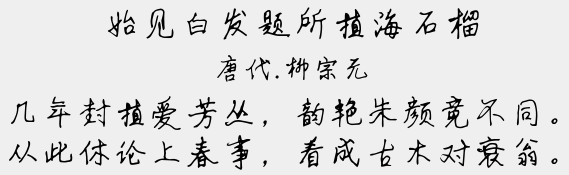 始见白发题所植海石榴
唐代.柳宗元
几年封植爱芳丛，韵艳朱颜竟不同。
从此休论上春事，看成古木对衰翁。